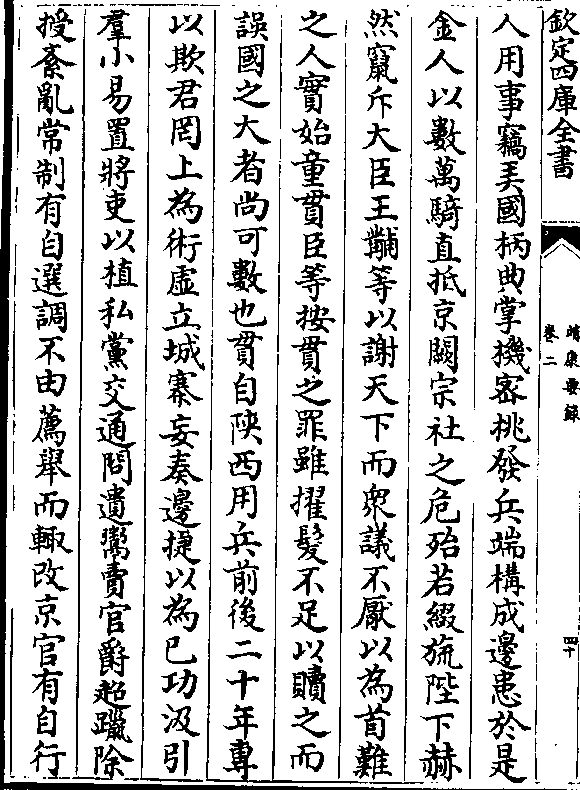 欽定四庫全書
靖康要錄
卷二
四十
人用事竊弄國柄典掌機密挑發兵端構成邊患於是
金人以數萬騎直抵京闕宗社之危殆若綴旒陛下赫
然竄斥大臣王黼等以謝天下而衆議不厭以為首難
之人實始童貫臣等按貫之罪雖擢髮不足以贖之而
誤國之大者尚可數也貫自陝西用兵前後二十年專
以欺君罔上為術虚立城寨妄奏邊捷以為已功汲引
羣小易置將吏以植私黨交通問遺鬻賣官爵超躐除
授紊亂常制有自選調不由薦舉而輙改京官有自行